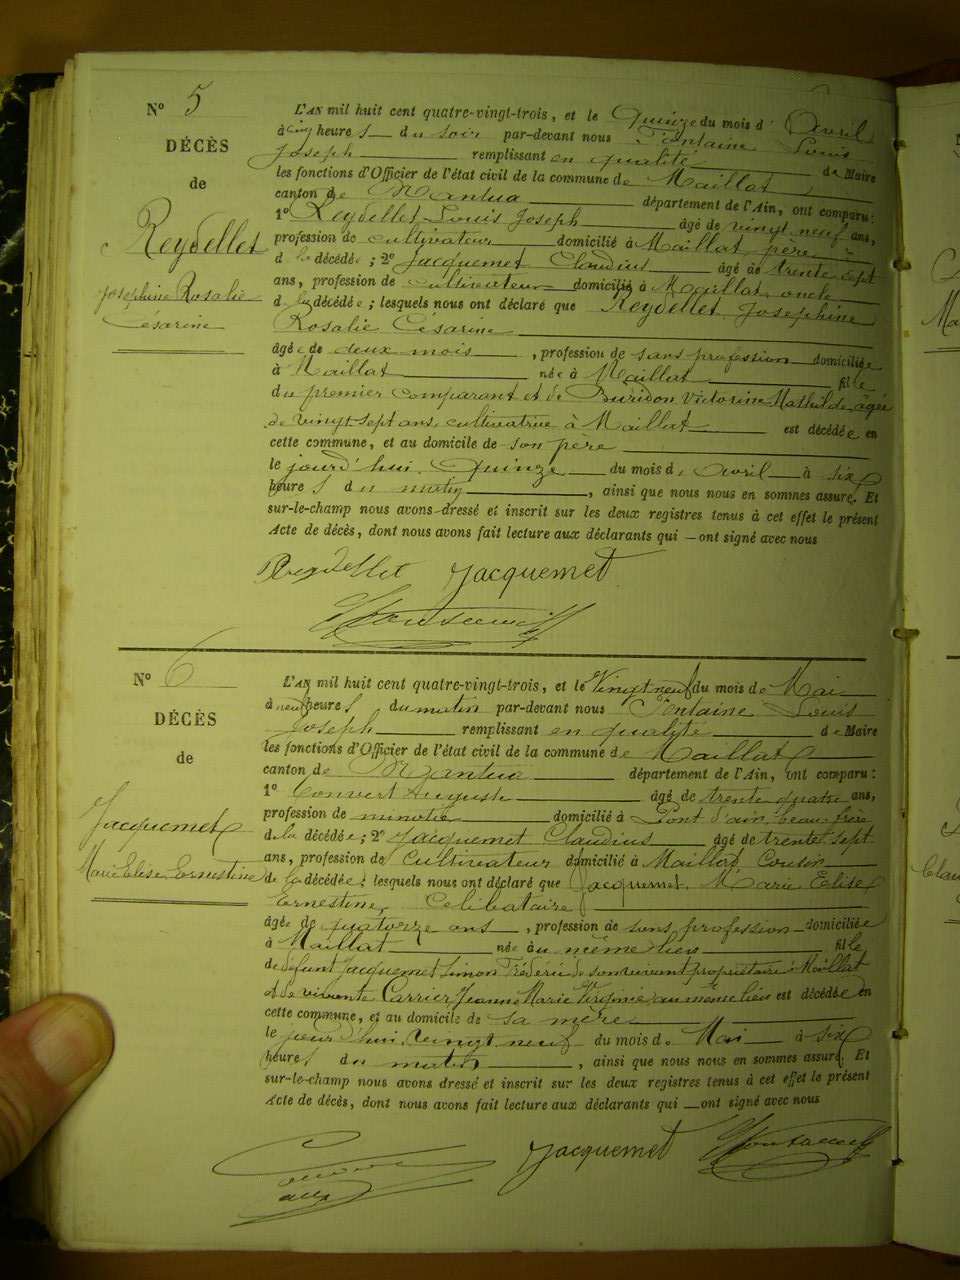 N° 5
DÉCÈS
de
Reydellet
Joséphine Rosalie
Césarine
L'AN mil huit cent quatre-vingt-trois, et le Quinze du mois d'Avril
à cinq heures du soir par-devant nous Fontaine Louis
Joseph remplissant en qualité de Maire
les fonctions d'Officier de l'état civil de la commune de Maillat
canton de Nantua département de l'Ain, ont comparu:
1° Reydellet Louis Joseph âgé de vingt neuf ans,
profession de cultivateur domicilié à Maillat père
d la décédée; 2° Jacquemet Claudius âgé de trente sept
ans, profession de cultivateur domicilié à Maillat oncle
d la décédée; lesquels nous ont déclaré que Reydellet Joséphine
Rosalie Césarine
âgée de deux mois, profession de sans profession domiciliée
à Maillat née à Maillat fille
du premier comparant et de Buridon Victorine Mathilde, âgée
de vingt sept ans, cultivatrice à Maillat est décédée en
cette commune, et au domicile de son père
le jourd'hui Quinze du mois d'Avril à six
heures du matin, ainsi que nous nous en sommes assuré. Et
sur-le-champ nous avons dressé et inscrit sur les deux registres tenus à cet effet le présent
Acte de décès, dont nous avons fait lecture aux déclarants qui ont signé avec nous
Reydellet Jacquemet
Fontaine
N° 6
DÉCÈS
de
Jacquemet
Marie Elise Ernestine
L'AN mil huit cent quatre-vingt-trois, et le Vingt neuf du mois de Mai
à neuf heures du matin par-devant nous Fontaine Louis
Joseph remplissant en qualité de Maire
les fonctions d'Officier de l'état civil de la commune de Maillat
canton de Nantua département de l'Ain, ont comparu:
1° Convert Auguste âgé de trente quatre ans,
profession de minotier domicilié à Pont d'ain, beau frère
de la décédée; 2° Jacquemet Claudius âgé de trente sept
ans, profession de Cultivateur domicilié à Maillat Cousin
de la décédée; lesquels nous ont déclaré que Jacquemet Marie Elise
Ernestine, Célibataire
âgée de quatorze ans, profession de sans profession domiciliée
à Maillat née au même lieu fille
de défunt Jacquemet Simon Frédéric de son vivant propriétaire à Maillat
et de vivante Carrier Jeanne Marie Virginie au même lieu est décédée en
cette commune, et au domicile de sa mère
le jour d'hui vingt neuf du mois de Mai à six
heures du matin, ainsi que nous nous en sommes assuré. Et
sur-le-champ nous avons dressé et inscrit sur les deux registres tenus à cet effet le présent
Acte de décès, dont nous avons fait lecture aux déclarants qui ont signé avec nous
Jacquemet Fontaine